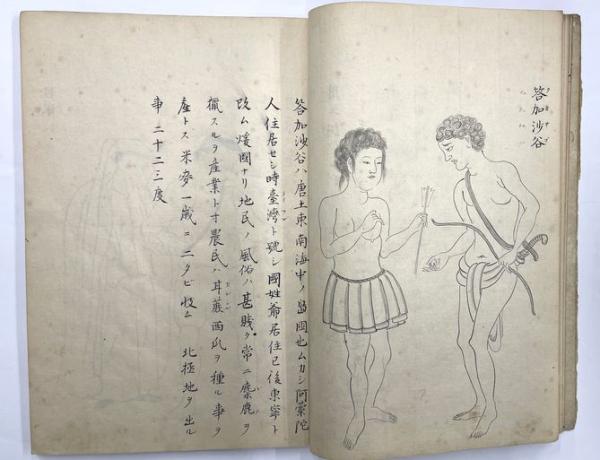 答加沙谷
答加沙谷ハ唐土東南海中ノ島國也ムカシ阿蘭陀
人住居セシ時臺灣ト號シ國姓爺居住已後東寧ト
改ム煖國ナリ地民ノ風俗ハ甚賤ク常ニ麋鹿ヲ
獵スルヲ産業トす農民ハ甘蔗西瓜ヲ種ル事ヲ
産トス米麥一歳ニ二タビ收ム 北極地ヲ出ル
事二十二三度